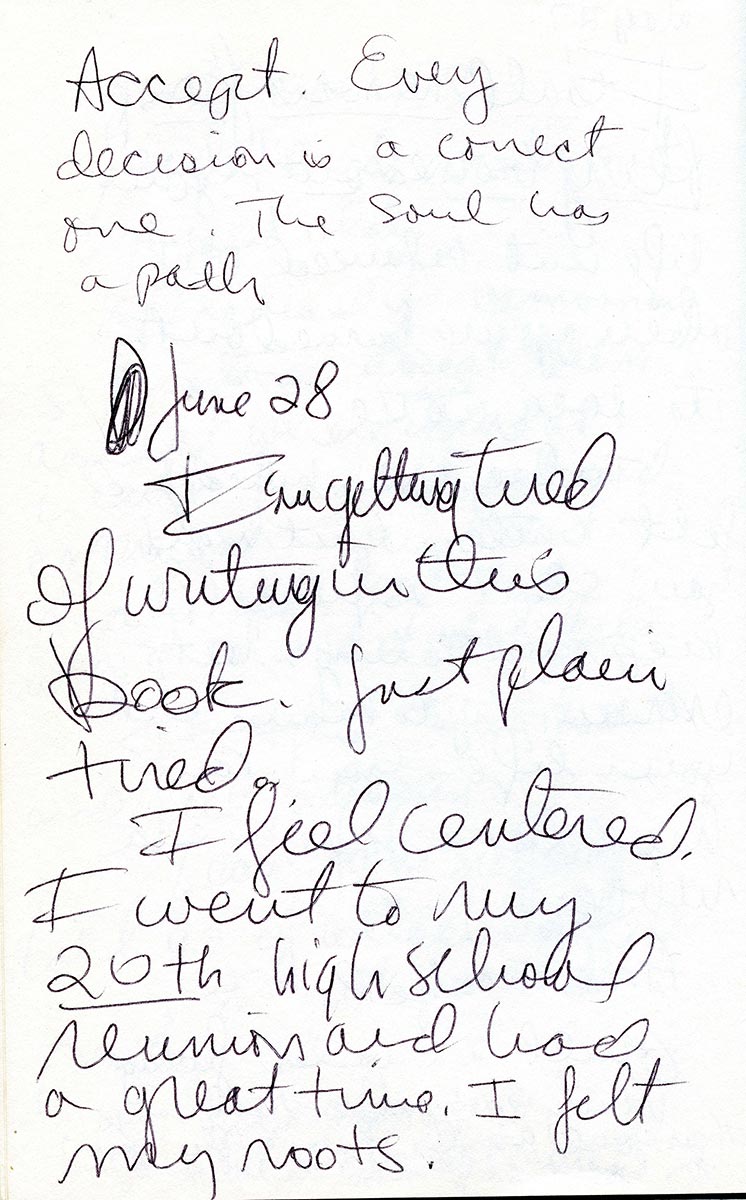 Accept. Every
decision is a correct
one. The Soul has
a path
June 28
I'm getting tired
of writing in this
book. Just plain
tired.
I feel centered.
I went to my
20th high school
reunion and had
a great time. I felt
my roots.